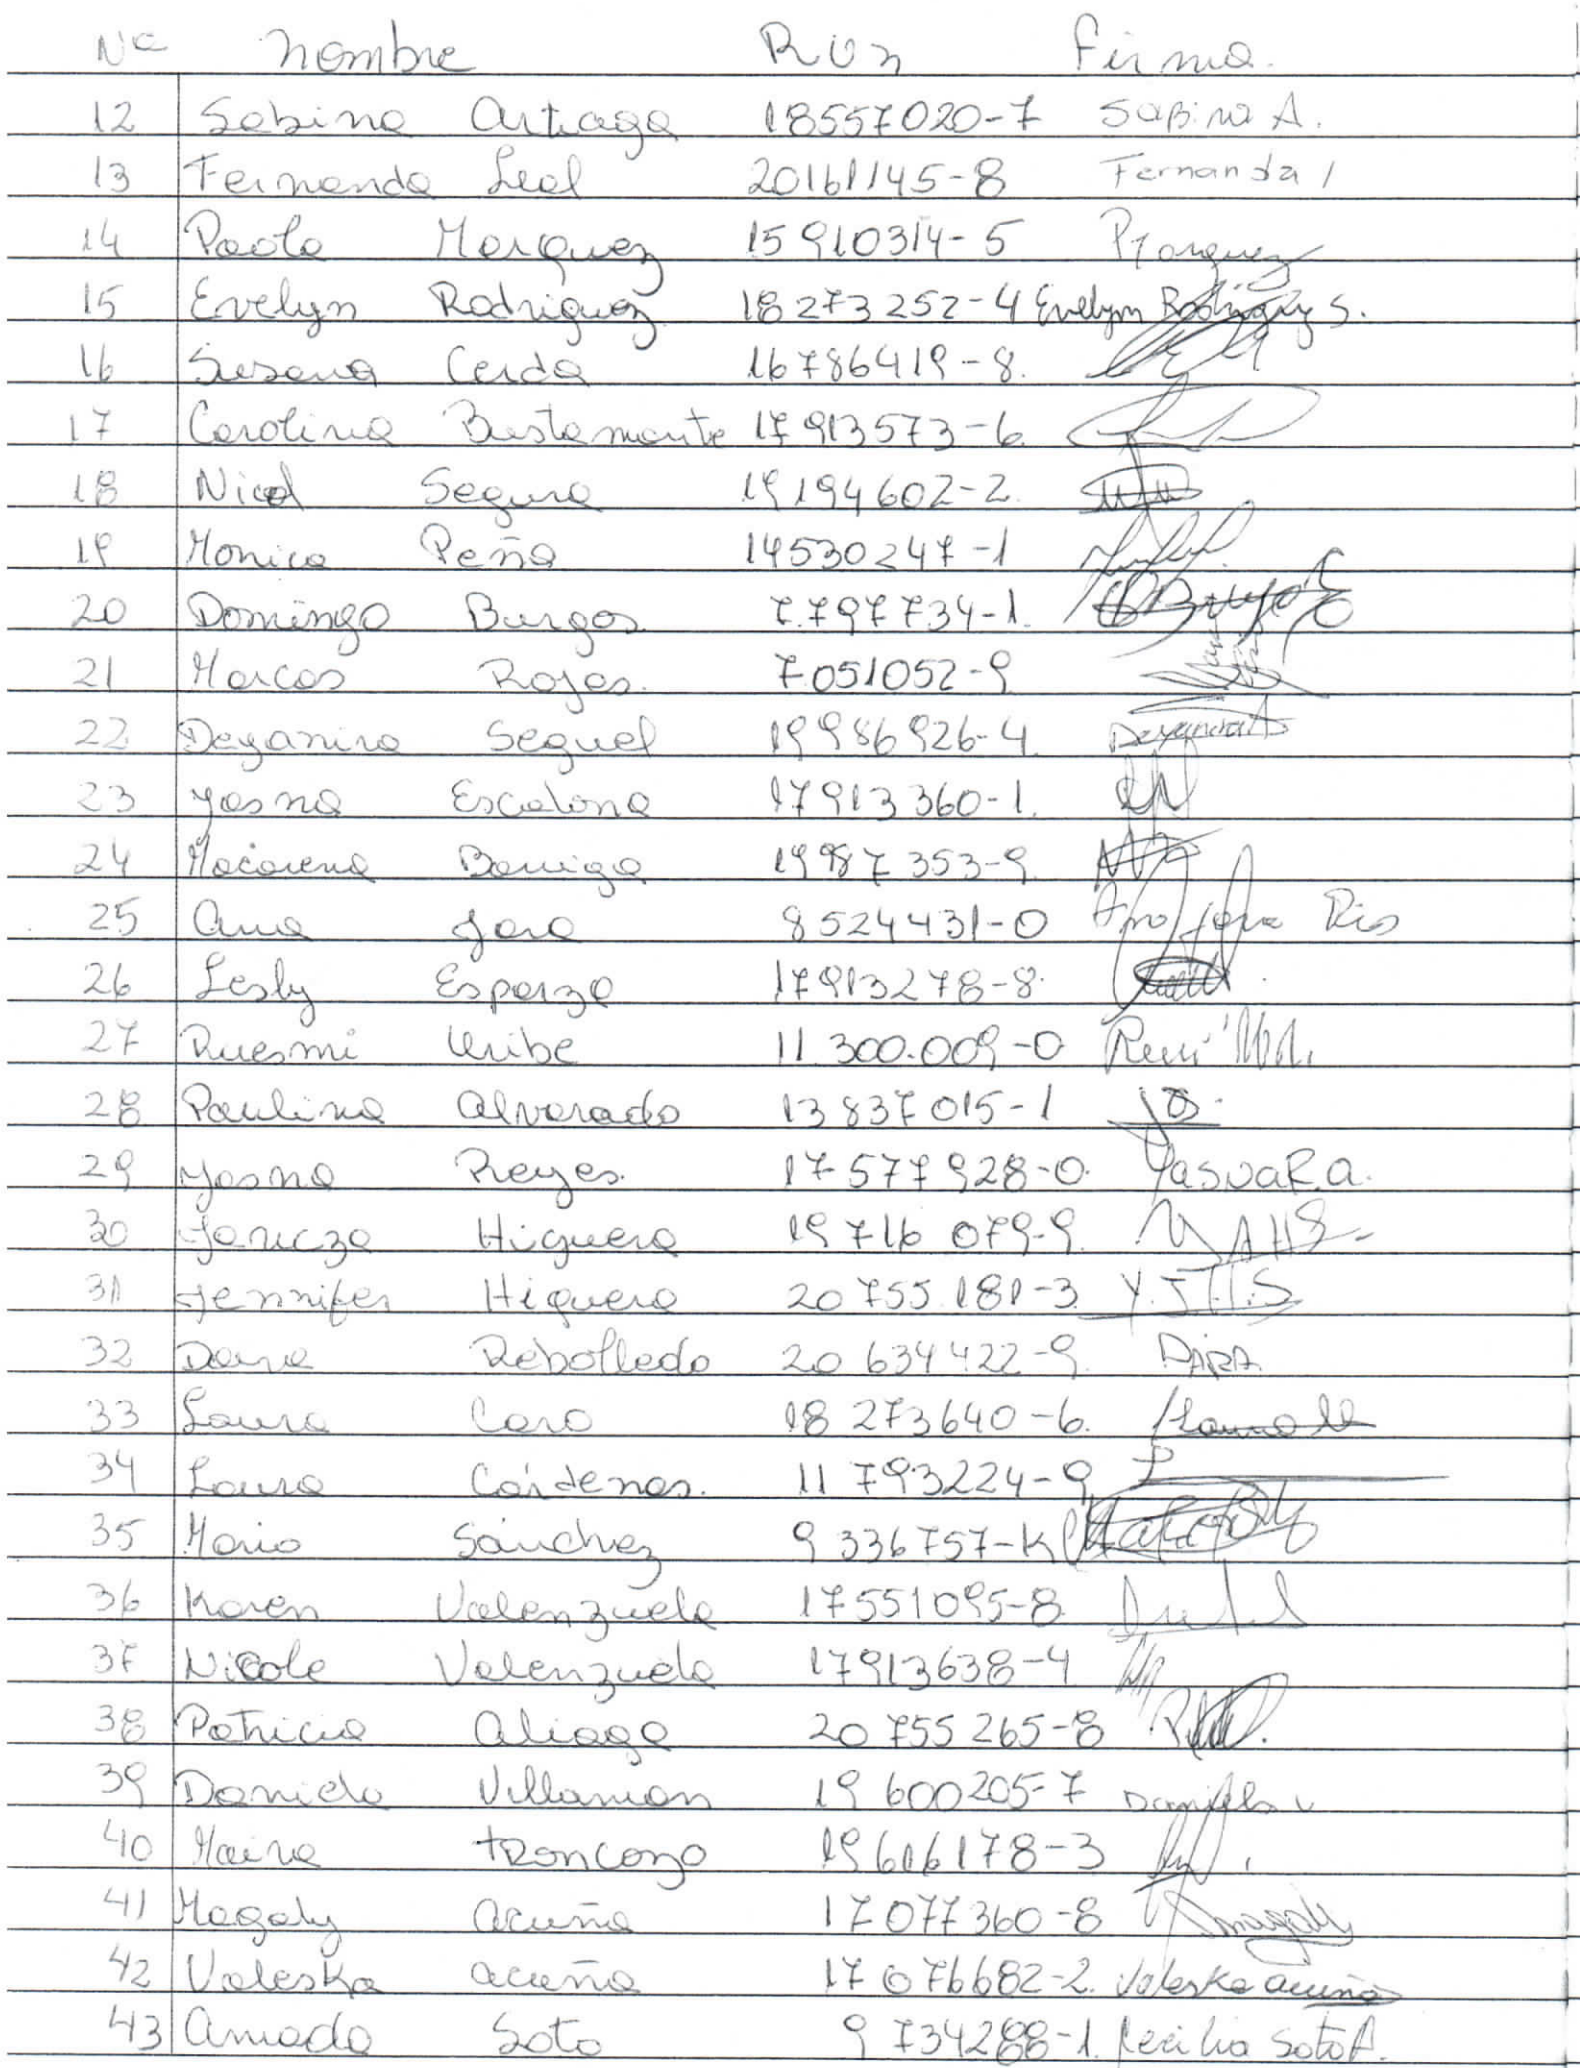 Nº nombre RUN firma.
12 Sabina Artiaga 18557020-7 Sabina A.
13 Fernanda Leal 20161145-8 Fernanda l
14 Paola Marquez 15910314-5 PMarquez
15 Evelyn Rodriguez 18273252-4 Evelyn Rodriguez S.
16 Susana Cerda 16786419-8.
17 Carolina Bustamante 17913573-6.
18 Nicol Segura 19194602-2.
19 Monica Peña 14530247-1
20 Domingo Burgos 7.797734-1. Burgos
21 Marcos Rojas. 7051052-9
22 Deyanira Seguel 19986926-4. Deyanira
23 Yasna Escalona 17913360-1.
24 Macarena Barriga 19987353-9
25 Ana Jara 8524431-0 Ana Jara Rio
26 Lesly Esparza 17913278-8.
27 Ruesmi Uribe 11.300.009-0
28 Paulina Alvarado 13837015-1
29 Yasna Reyes. 17577928-0. Yasna R.a.
30 Janicza Higuera 19716079-9.
31 Jennifer Higuera 20755181-3 Y.J.H.S
32 Dara Rebolledo 20634422-9. DARA
33 Laura Caro 18273640-6.
34 Laura Cárdenas. 11793224-9
35 Mario Sánchez 9336757-K
36 Karen Valenzuela 17551095-8
37 Nicole Valenzuela 17913638-4
38 Patricia Aliaga 20755265-8
39 Daniela Villaman 19600205-7 Daniela v
40 Maira Troncozo 19616178-3
41 Magaly Acuña 17077360-8 Magaly
42 Valeska Acuña 17076682-2. Valeska Acuña
43 Amada Soto 9734288-1. Cecilia Soto A.